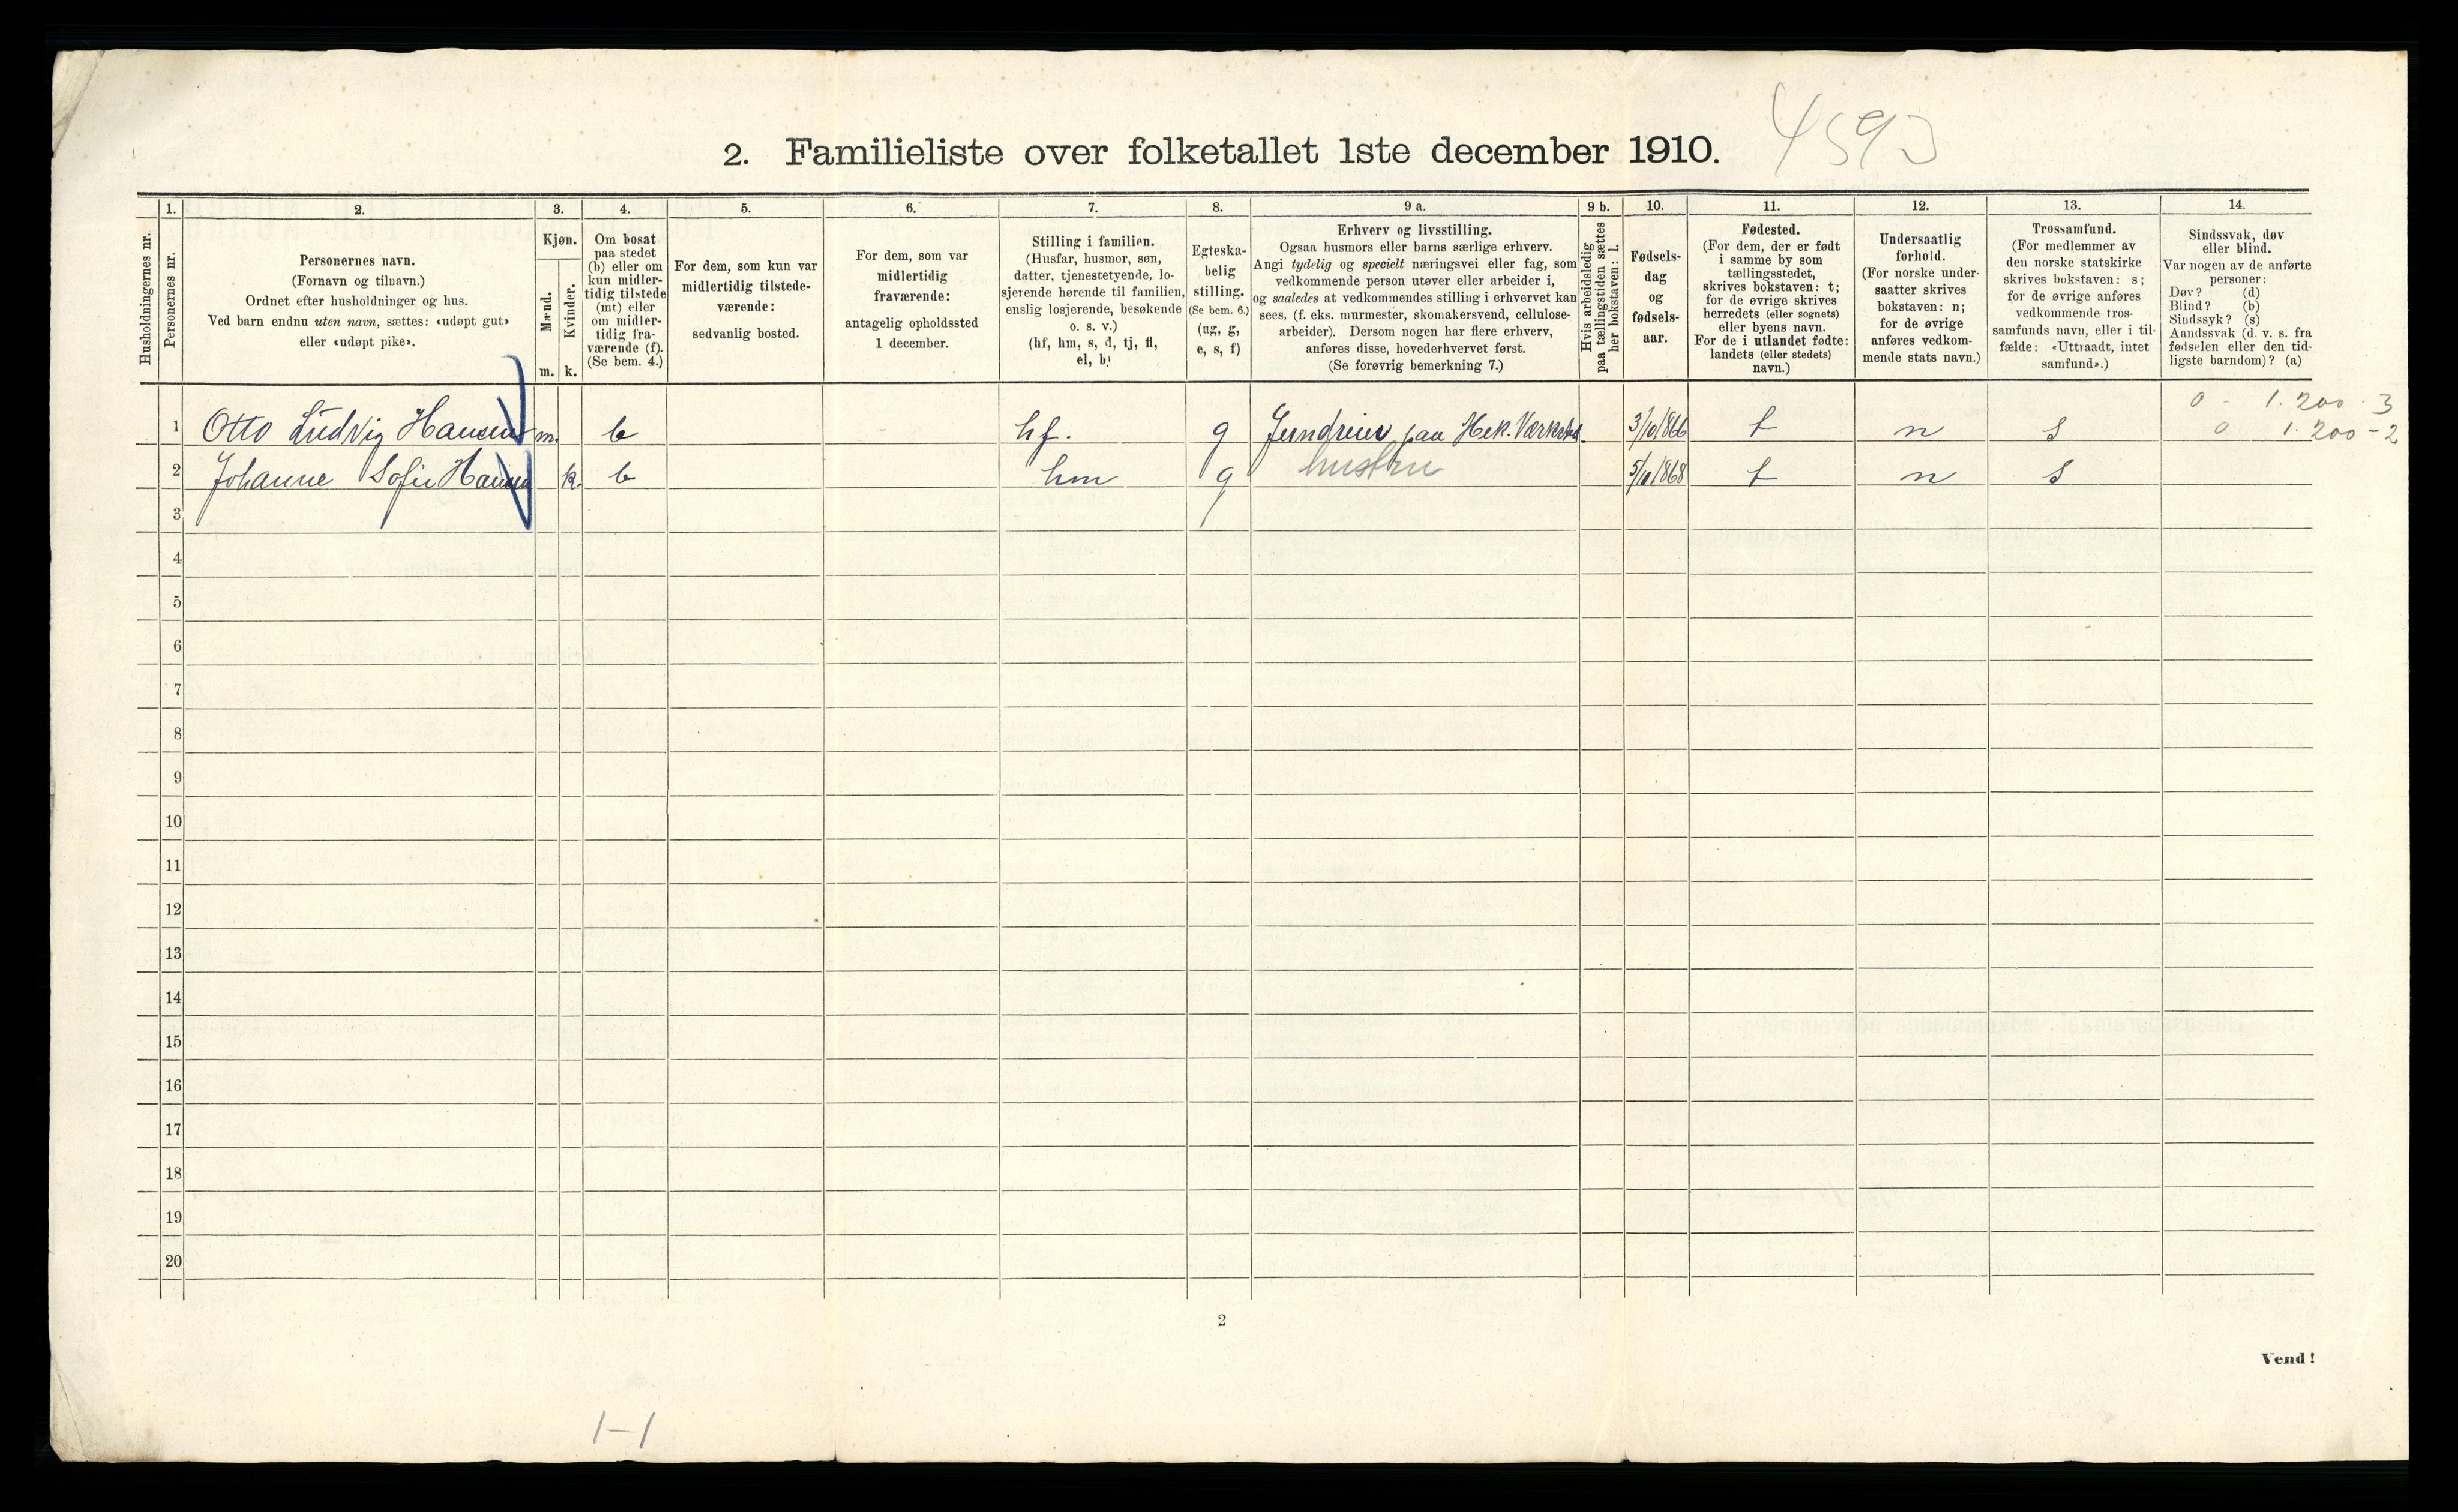 4593
2. Familieliste over folketallet 1ste december 1910.
Husholdningernes nr.
1.
Personernes nr.
2.
Personernes navn.
(Fornavn og tilnavn.)
Ordnet efter husholdninger og hus.
Ved barn endnu uten navn, sættes: «udøpt gut»
eller «udøpt pike».
3.
Kjøn.
Mænd.
Kvinder.
m. k.
4.
Om bosat
paa stedet
(b) eller om
kun midler-
tidig tilstede
(mt) eller
om midler-
tidig fra-
værende (f).
(Se bem. 4.)
5.
For dem, som kun var
midlertidig tilstede-
værende:
sedvanlig bosted.
6.
For dem, som var
midlertidig
fraværende:
antagelig opholdssted
1 december.
7.
Stilling i familien.
(Husfar, husmor, søn,
datter, tjenestetyende, lo-
sjerende hørende til familien,
enslig losjerende, besøkende
o. s. v.)
(hf, hm, s, d, tj, fl,
el, b)
8.
Egteska-
belig
stilling.
(Se bem. 6.)
(ug, g,
e, s, f)
9 a.
Erhverv og livsstilling.
Ogsaa husmors eller barns særlige erhverv.
Angi tydelig og specielt næringsvei eller fag, som
vedkommende person utøver eller arbeider i,
og saaledes at vedkommendes stilling i erhvervet kan
sees, (f. eks. murmester, skomakersvend, cellulose-
arbeider). Dersom nogen har flere erhverv,
anføres disse, hovederhvervet først.
(Se forøvrig bemerkning 7.)
9 b.
Hvis arbeidsledig
paa tællingstiden sættes
her bokstaven: l.
10.
Fødsels-
dag
og
fødsels-
aar.
11.
Fødested.
(For dem, der er født
i samme by som
tællingsstedet,
skrives bokstaven: t;
for de øvrige skrives
herredets (eller sognets)
eller byens navn.
For de i utlandet fødte:
landets (eller stedets)
navn.)
12.
Undersaatlig
forhold.
(For norske under-
saatter skrives
bokstaven: n;
for de øvrige
anføres vedkom-
mende stats navn.)
13.
Trossamfund.
(For medlemmer av
den norske statskirke
skrives bokstaven: s;
for de øvrige anføres
vedkommende tros-
samfunds navn, eller i til-
fælde: «Uttraadt, intet
samfund».)
14.
Sindssvak, døv
eller blind.
Var nogen av de anførte
personer:
Døv? (d)
Blind? (b)
Sindssyk? (s)
Aandssvak (d. v. s. fra
fødselen eller den tid-
ligste barndom)? (a)
0 - 1.200 - 3
1 Otto Ludvig Hansen m. b hf. g Jerndreier paa Mek. Værksted. 3/10 1866 t n s 0 1.200 - 2
2 Johanne Sofie Hansen k. b hm g hustru 5/10 1868 t n s
3
4
5
6
7
8
9
10
11
12
13
14
15
16
17
18
19
20
2
Vend!
1-1